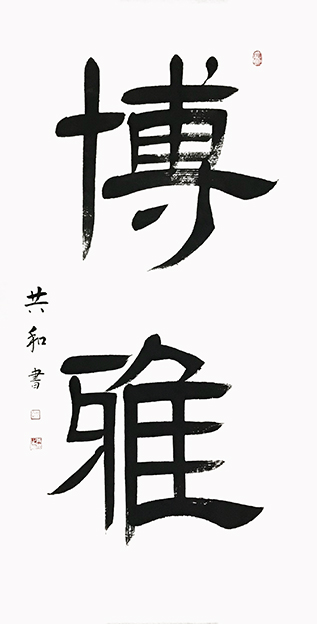 博雅
共和書